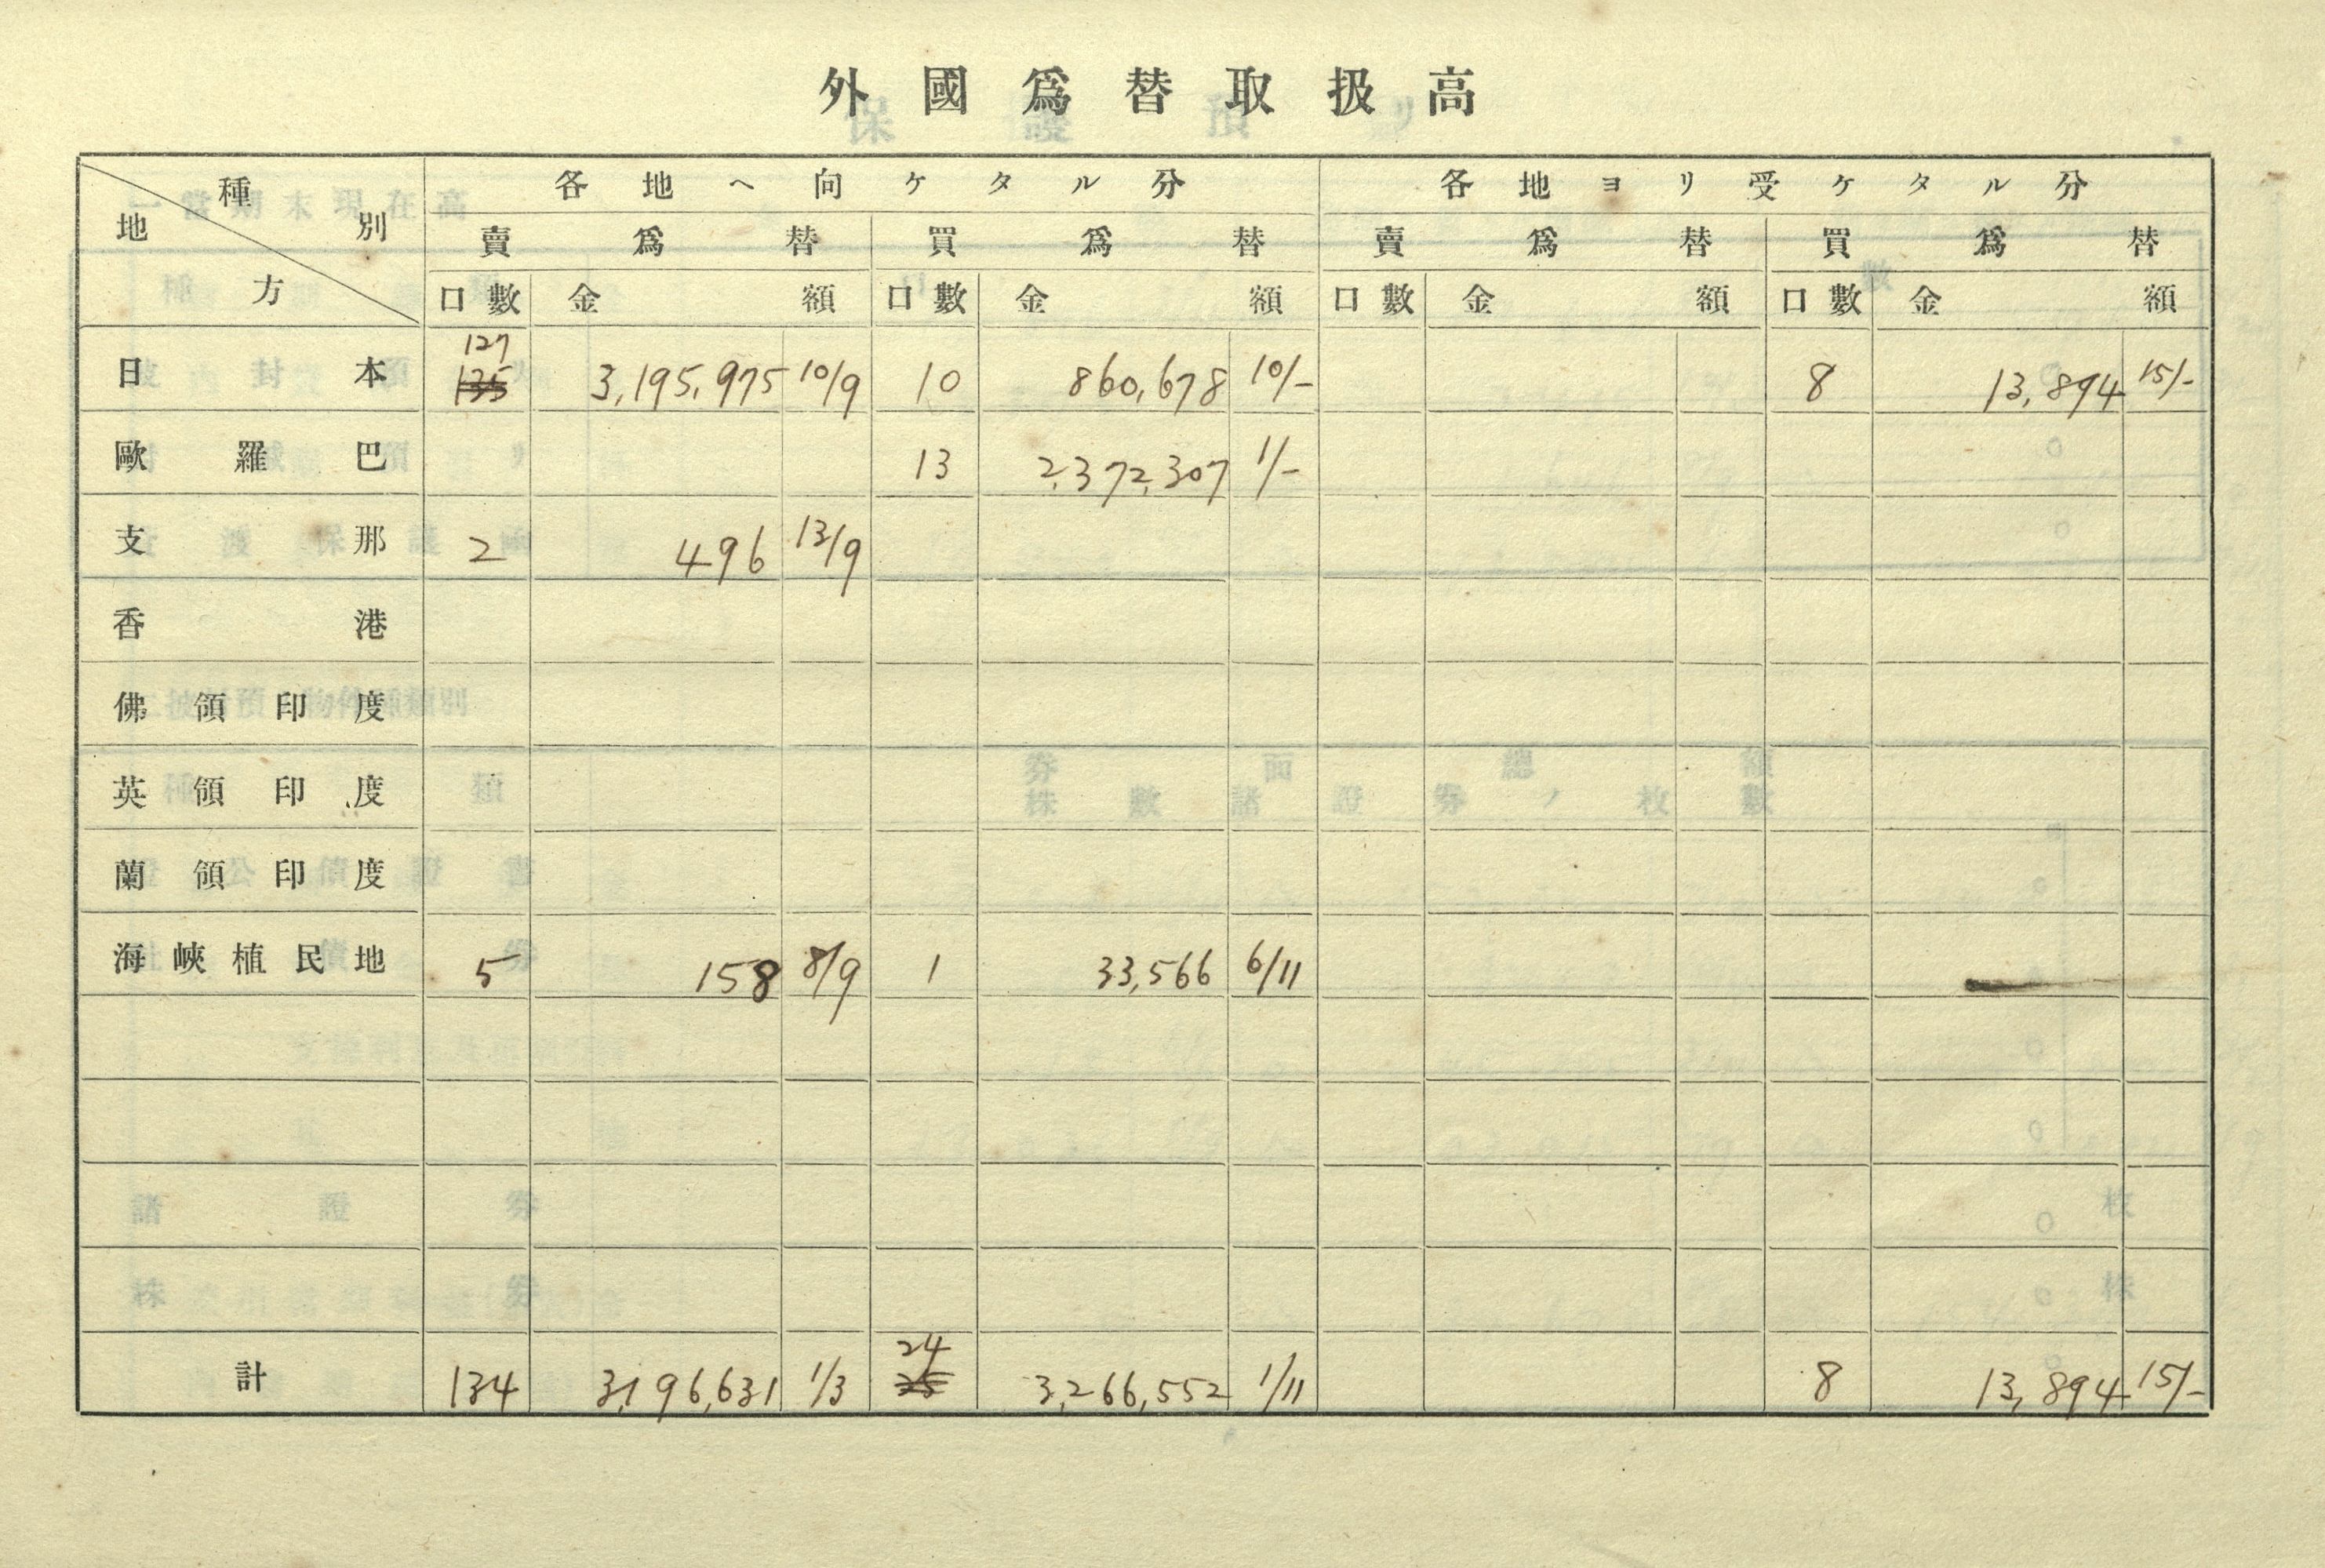 外國爲替取扱高
種別 地方 各地ヘ向ケタル分 各地ヨリ受ケタル分
賣爲替 買爲替 賣爲替 買爲替
口數 金額 口數 金額 口數 金額 口數 金額
127
日本 135 3,195,975 10/9 10 860,678 10/- 8 13,894 15/-
歐羅巴 13 2,372,307 1/-
支那 2 496 13/9
香港
佛領印度
英領印度
蘭領印度
海峽植民地 5 158 8/9 1 33,566 6/11
24
計 134 3,196,631 1/3 25 3,266,552 1/11 8 13,894 15/-